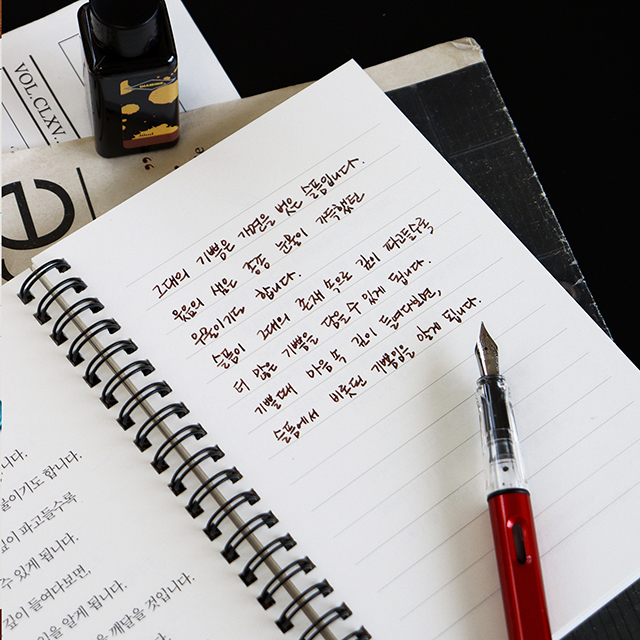 VOL.CLXV.
e
그대의 기쁨은 가면을 벗은 슬픔입니다.
웃음의 샘은 종종 눈물이 가득했던
우물이기도 합니다.
슬픔이 그대의 존재 속으로 깊이 파고들수록
더 많은 기쁨을 담을 수 있게 됩니다.
기쁠때 마음 속 깊이 들여다보면,
슬픔에서 비롯된 기쁨임을 알게 됩니다.
니다.
물이기도 합니다.
깊이 파고들수록
수 있게 됩니다.
깊이 들여다보면,
임을 알게 됩니다.
을 깨달을 것입니다.